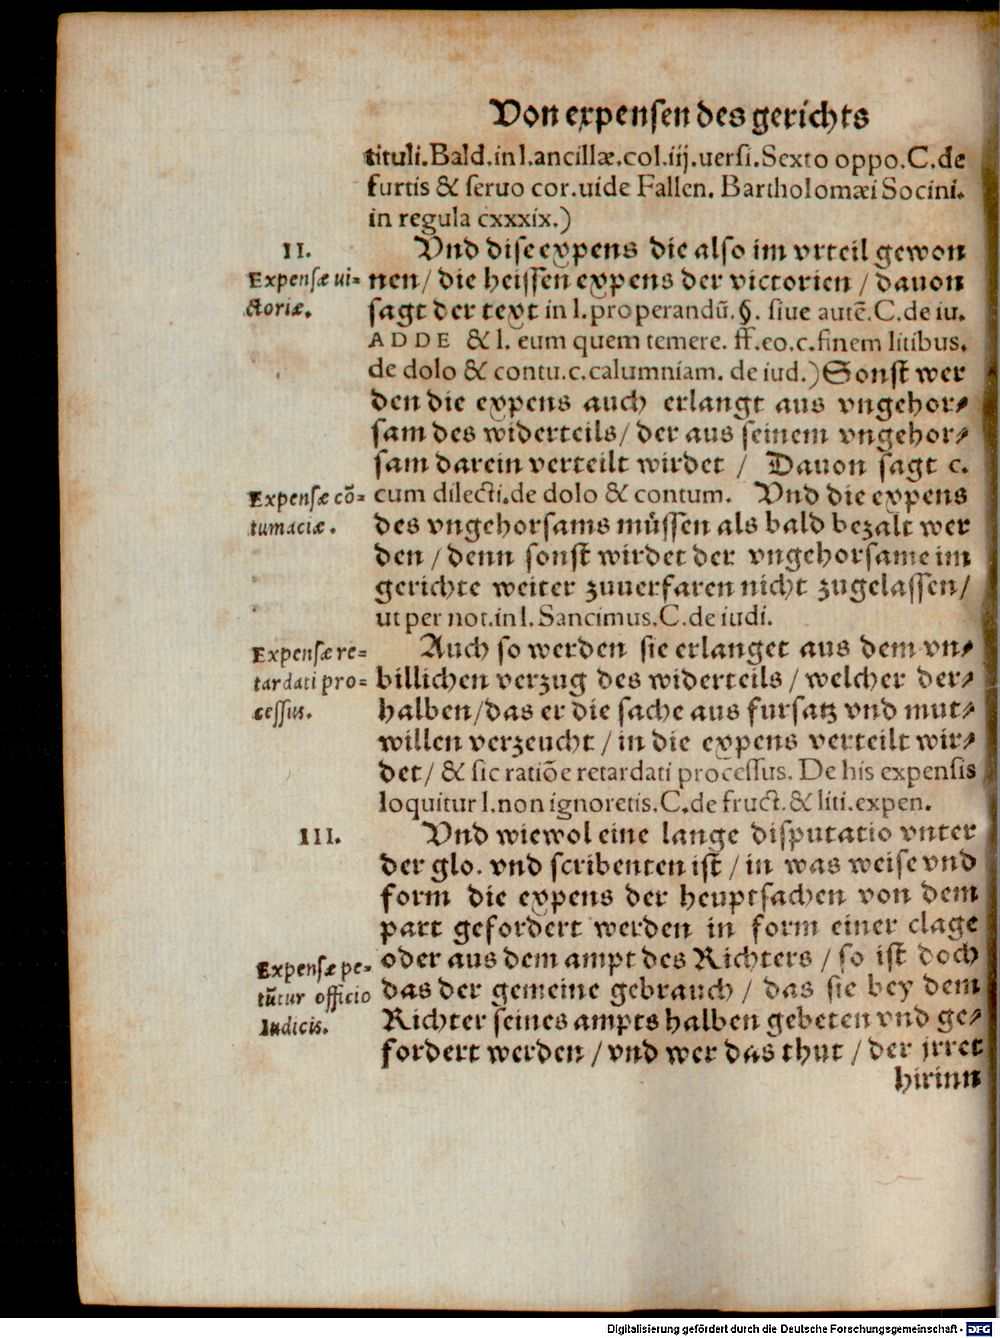 Von expensen des gerichts
tituli. Bald. in l. ancillæ. col. iij. uersi. Sexto oppo. C. de
furtis & seruo cor. uide Fallen. Bartholomæi Socini.
in regula cxxxix.)
II.
Vnd dise expens die also im vrteil gewon
Expensæ ui=
nen / die heissen expens der victorien / dauon
ctoriæ.
sagt der text in l. properandū. §. siue autē. C. de iu.
ADDE & l. eum quem temere. ff. eo. c. finem litibus.
de dolo & contu. c. calumniam. de iud.) Sonst wer
den die expens auch erlangt aus vngehor⸗
sam des widerteils / der aus seinem vngehor⸗
sam darein verteilt wirdet / Dauon sagt c.
Expensæ cō=
cum dilecti. de dolo & contum. Vnd die expens
tumaciæ.
des vngehorsams müssen als bald bezalt wer
den / denn sonst wirdet der vngehorsame im
gerichte weiter zuuerfaren nicht zugelassen /
ut per not. in l. Sancimus. C. de iudi.
Expensæ re=
Auch so werden sie erlanget aus dem vn⸗
tardati pro=
billichen verzug des widerteils / welcher der⸗
cessus.
halben / das er die sache aus fursatz vnd mut⸗
willen verzeucht / in die expens verteilt wir⸗
det / & sic ratiōe retardati processus. De his expensis
loquitur l. non ignoretis. C. de fruct. & liti. expen.
III.
Vnd wiewol eine lange disputatio vnter
der glo. vnd scribenten ist / in was weise vnd
form die expens der heuptsachen von dem
part gefordert werden in form einer clage
Expensæ pe=
oder aus dem ampt des Richters / so ist doch
tūtur officio
das der gemeine gebrauch / das sie bey dem
Iudicis.
Richter seines ampts halben gebeten vnd ge⸗
fordert werden / vnd wer das thut / der jrret
hirinn
Digitalisierung gefördert durch die Deutsche Forschungsgemeinschaft - DFG